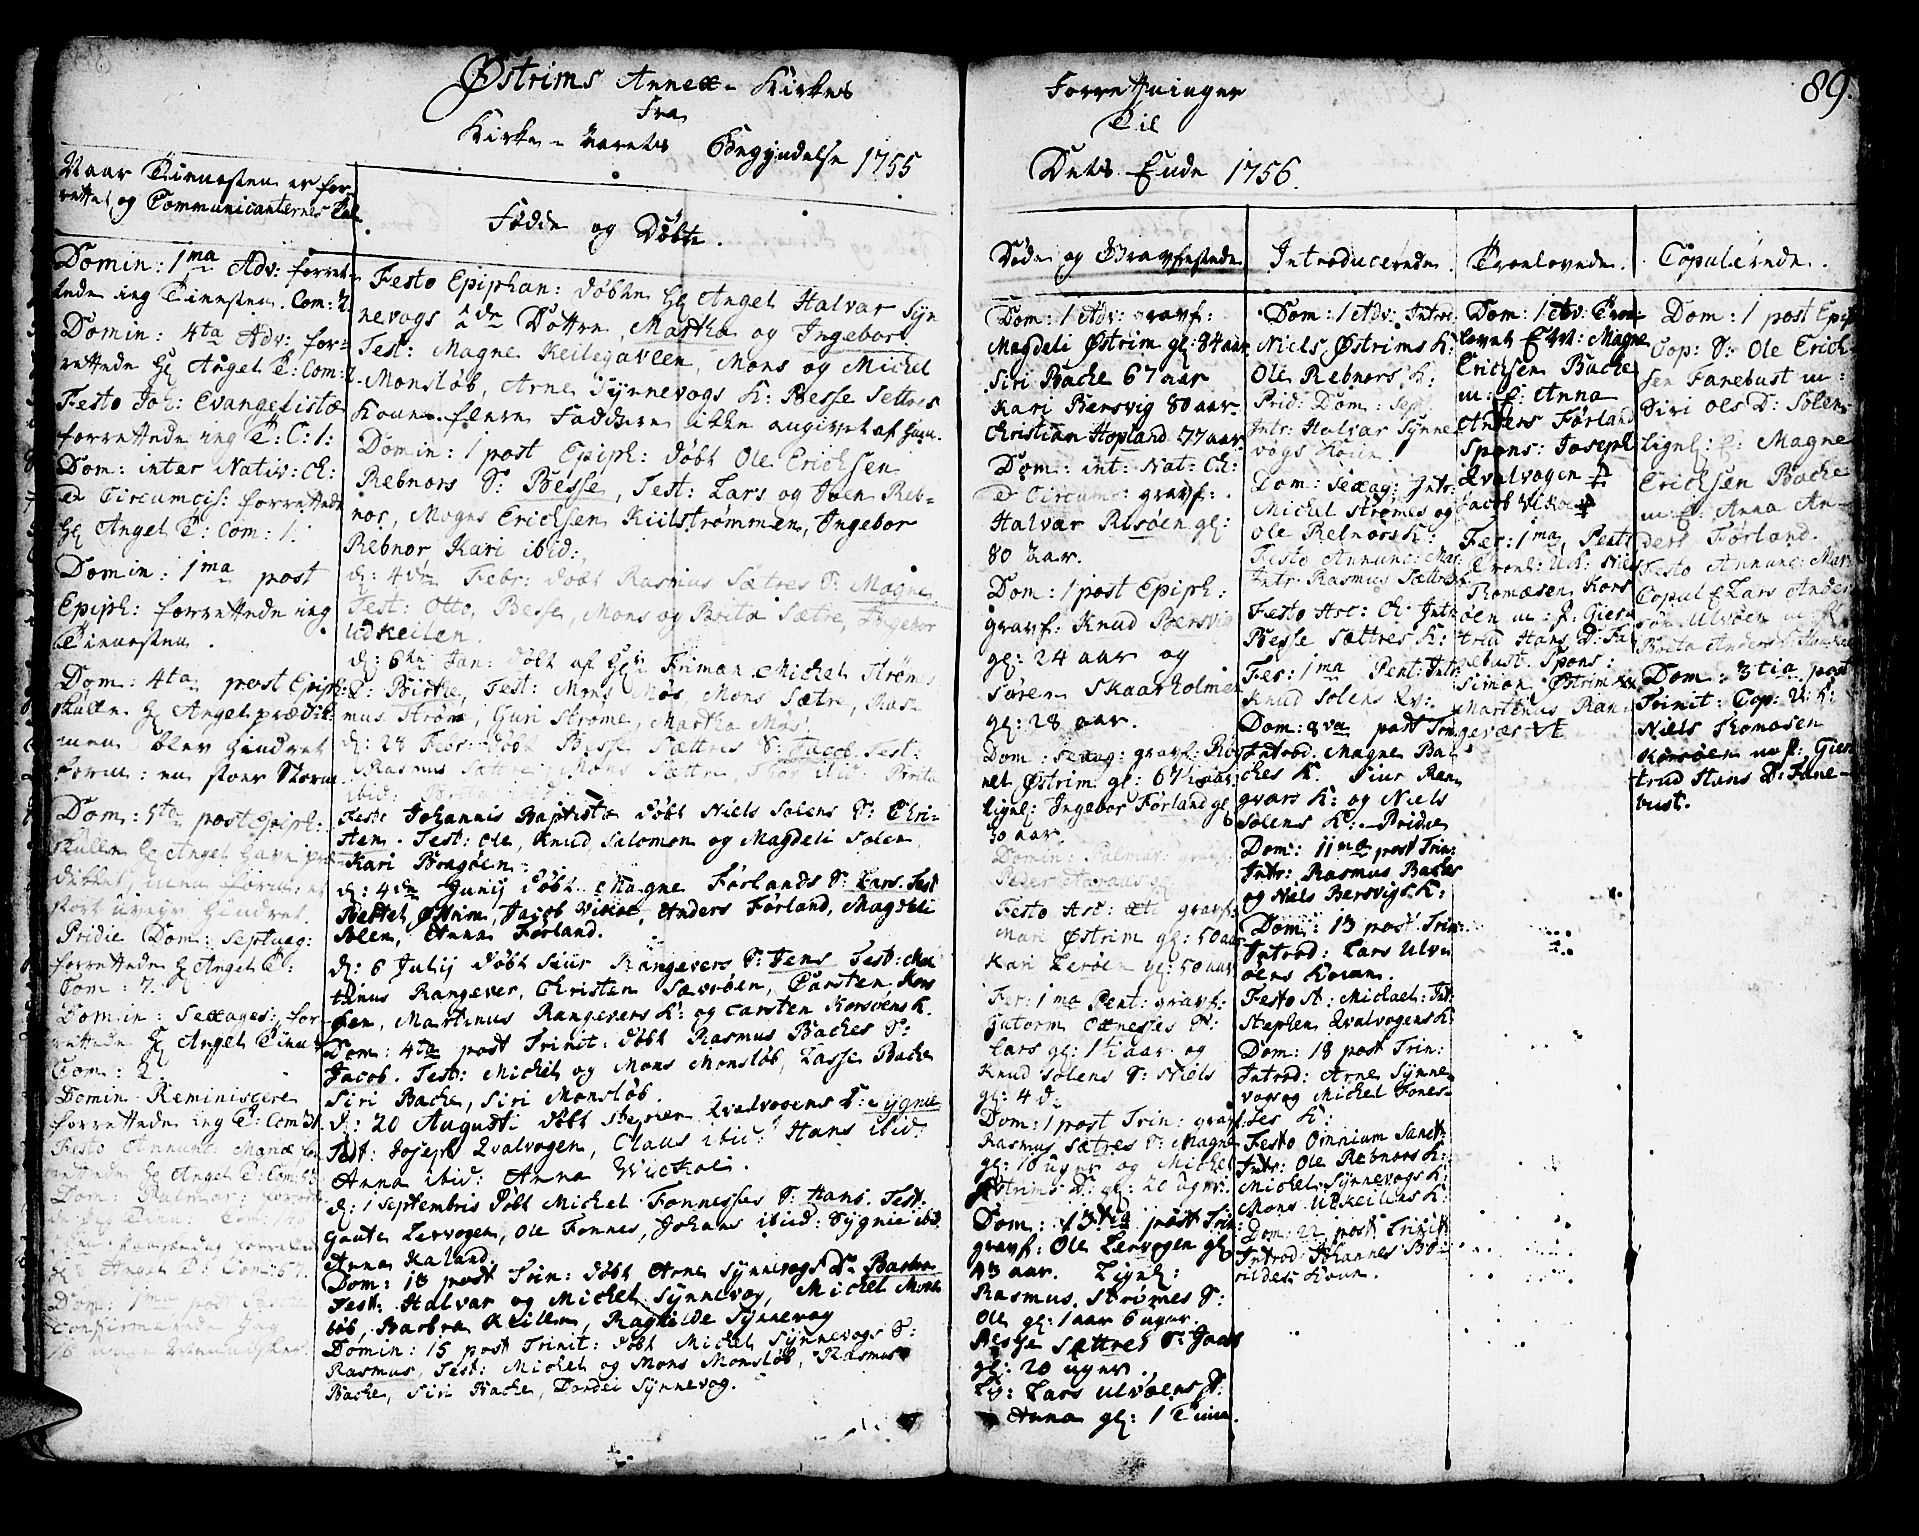 Østrims Annex-Kirkes
Fra
Kirke-Aarets Begyndelse 1755
Naar Tienesten er for-
rettet og Communicanternes Tal.
Domin: 1ma Adv: forret-
tede ieg Tienesten. Com: 2.
Domin: 4ta Adv: for-
rettede Hr Angel T: Com:
Festo Joh: Evangelistæ
forrettede ieg T: C: 1:
Dom: inter Nativ: Ch:
et Circumcis: forrettede
Hr Angel T: Com: 1.
Domin: 1ma post
Epiph: forrettede ieg
Tienesten.
Dom: 4ta post Epiph:
skulle Hr Angel prædik
men blev hindret
form: en stoer Storm
Dom: 5ta post Epiph:
skulle Hr Angel have præ-
diket, men form: et
stort uveyr hindret.
Pridie Dom: Septuag:
forrettede Hr Angel T:
Com: 7.
Domin: Sexages: for-
rettede Hr Angel Tien:
Com: 2.
Domin Reminiscere
forrettede ieg T: Com:
Festo Annunt: Mariæ for-
rettede Hr Angel T: Com:
Dom: Palmar: forret-
Hr Angel T: Com: 57.
Dom: 1ma post
Confirmerede Jeg
Fødde og Døbte.
Festo Epiphan: døbte Hr Angel Halvar Syn
nevogs 2de Døttre, Martha og Ingebor.
Test: Magne Keilegaveen, Mons og Michel
Monsløb, Arne Synnevogs K: Besse Settres
Kone. fleere Faddere ikke angivet af ham.
Domin: 1 post Epiph: døbt Ole Erichsen
Rebnors S: Besse, Test: Lars og Joen Reb-
nor, Mogns Erichsen Kiilstrømmen, Ingebor
Rebnor Kari ibid:
d: 4de Febr: døbt Rasmus Sætres S: Magne
Test: Otto, Besse, Mons og Brita Sætre, Ingebor
Udkeilen.
d: 6te Jan: døbt af Hr Friman Michel Strømes
D: Birthe, Test: Mons Møs, Mons Sætre, Ras-
mus Strøm, Guri Strøme, Martha Møs.
d: 28 Febr: døbt Besse Sættres S: Jacob. Test:
Rasmus Sættre, Mons Sættre Thor ibid: Brita
ibid: Brita
Festo Johannis Baptistæ døbt Niels Solens S: Chri-
sten. Test: Ole, Knud Salomon og Magdeli Solen,
Kari Bragøen.
d: 4de Junij døbt Magne Førlands S: Lars. Test
Bertel Østrim, Jacob Vikøe, Anders Førland, Magdeli
Solen, Anna Førland.
d: 6 Julij døbt Siur Rangevers S: Jens Test: Mar
tinus Rangever, Christen Sævrøen, Carsten Kors
øen, Martinus Rangevers K: og Carsten Korsøens K.
Dom: 4ta post Trinit: døbt Rasmus Baches S:
Jacob. Test: Michel og Mons Monsløb, Lasse Bache
Siri Bache, Siri Monsløb.
d: 20 Augusti døbt Stephen Qvalvogens D: Sygnie
Test: Joseph Qvalvogen, Claus ibid: Hans ibid:
Anna ibid: Anna Wickøe.
d: 1 Septembris døbt Michel Fonnesses S: Hans. Test:
Gaute Lervogen, Ole Fonnes, Johans ibid: Sygnie ibid
Anna Kaland.
Dom: 13 post Trin: døbt Arne Synnevogs Dr Barbra
Test: Halvar og Michel Synnevog, Michel Mons-
løb, Barbra Keilen, Raghilde Synnevog
Domin: 15 post Trinit: døbt Michel Synnevogs S:
Rasmus, Test: Michel og Mons Monsløb, Rasmus
Bache, Siri Bache, Dordei Synnevog.
Forretninger
Til
Dets Ende 1756.
89.
Døde og Gravfestede
Dom: 1 Adv: gravf:
Magdeli Østrim gl: 84 aar
Siri Bache 67 aar
Kari Bersvig 80 aar
Christian Hopland 77 aar
Dom: int: Nat: Ch:
et Circumc: gravf:
Halvar Risøen gl:
80 aar.
Dom: 1 post Epiph:
gravf: Knud Bersvig
gl: 24 aar og
Søren Skaarholmen
gl: 28 aar.
Dom: Sexag: gravf:
Østrim gl: 67½ aar
ligel: Ingebor Førland gl
50 aar.
Domin: Palmar: gravf:
Peder
Festo Asc: Xti gravf:
Mari Østrim gl: 50 aar
Kari Lerøen gl: 50 aar
Fer: 1ma Pent: gravf:
Guttorm Ternesses S:
Lars gl: 1½ aar og
Knud Solens S: Niels
gl: 4 d:
Dom: 1 post Trin: gravf:
Rasmus Sætres S: Magne
gl: 16 uger og Michel
Østrims D: gl: 20 uger.
Dom: 13tia post Trin:
gravf: Ole Lervogen gl:
43 aar. Ligel:
Rasmus Strømes S:
Ole gl: 1 aar 6 uger.
Besse Sættres S: Jacob
gl: 20 uger.
Lig: Lars Ulvøens D:
Anna gl: 1 Time.
Introducerede.
Dom: 1 Adv: Introd
Niels Østrims K:
Ole Rebnors K:
Prid: Dom: Sept:
Intr: Halvar Synne
vogs Kone.
Dom: Sexag: Intr:
Michel Strømes og
Ole Rebnors K:
Festo Annunc: Mar:
Intr: Rasmus Sættres
Festo Asc: Ch: Intr
Besse Sættres K:
Fer: 1ma Pent: Intr
Knud Solens Qv:
Dom: 8va post Trin
Introd: Magne Ba-
ches K. Siur Ran
gværs K: og Niels
Solens K: Pridie
Dom: 11ma post Trin:
Intr: Rasmus Baches
og Niels Bersvigs K:
Dom: 13 post Trin:
Introd: Lars Ulv
øens Kone.
Festo St: Michael: Int:
Stephen Qvalvogens K:
Dom: 18 post Trin:
Introd: Arne Synne
vogs og Michel Fones-
ses K:
Festo Omnium Sanct:
Intr: Ole Rebnors K:
Michel Synnevogs K:
Mons Udkeilens K:
Dom: 22 post Trinit
Introd: Johannes Bø-
rildes Kone.
Troelovede.
Dom: 1 Adv: Troe-
lovet Magne
Erichsen Bache
m: P: Anna
Anders Førland
Spons: Joseph
Qvalvogen
Jacob Vikøe
Fer: 1ma Pent:
Troel: U:K: Niels
Thomæsen Kors
øen m: P: Giert
trud Hans D: Fa-
nebust. Spons:
Simon Østrim
Martinus Ran-
gevær
Copulerede.
Dom: 1 post Epiph
Cop: S: Ole Erich-
sen Fanebust m:
Siri Ols D: Solen
Ligel: E: Magne
Erichsen Bache
m: P: Anna An-
ders Førland.
Festo Annunc: Mar:
Copul: E Lars Anders
søn Ulvøen m P:
Brita Anders D:
Dom: 3tia post
Trinit: Cop: U: K:
Niels Thomæsen
Korsøen m P: Giert
trud Hans D: Fane-
bust.